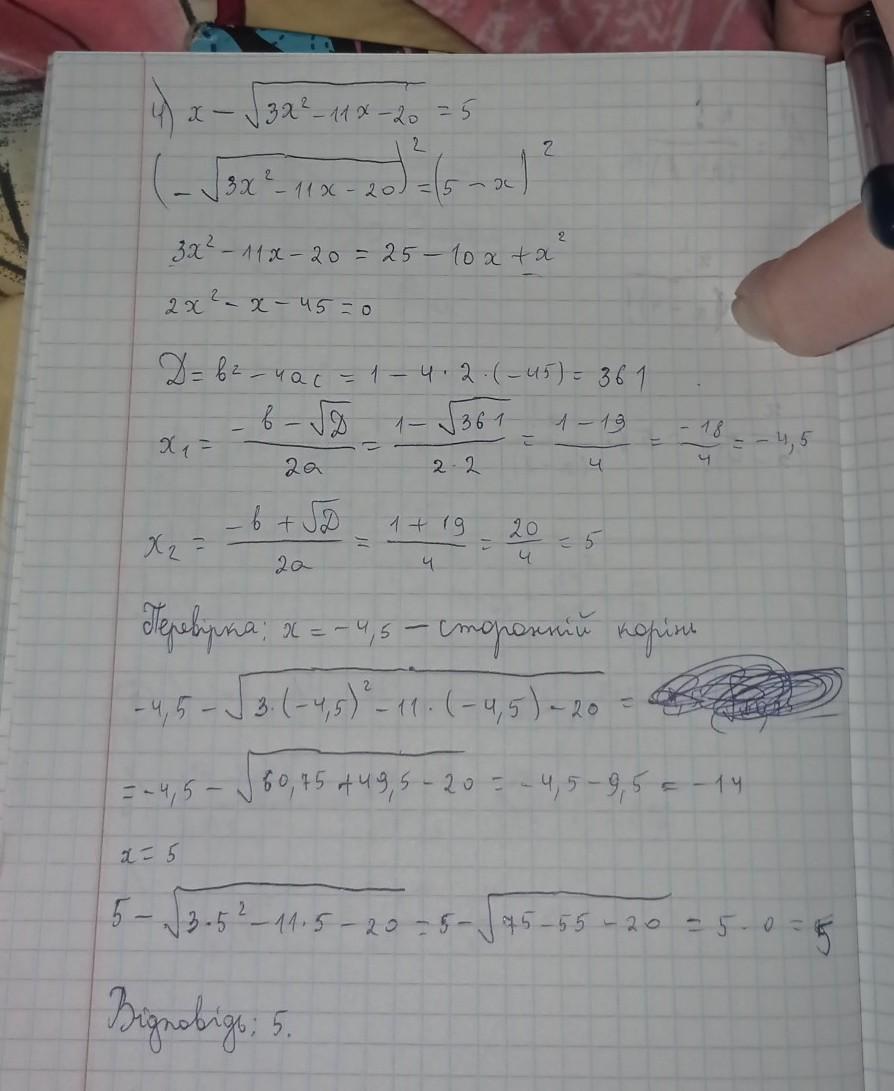 4) x − √(3x² − 11x − 20) = 5
(− √(3x² − 11x − 20))² = (5 − x)²
3x² − 11x − 20 = 25 − 10x + x²
2x² − x − 45 = 0
D = b² − 4ac = 1 − 4 · 2 · (−45) = 361
x₁ = (−b − √D)/2a = (1 − √361)/(2·2) = (1 − 19)/4 = −18/4 = −4,5
x₂ = (−b + √D)/2a = (1 + 19)/4 = 20/4 = 5
Перевірка: x = −4,5 − сторонній корінь
−4,5 − √(3·(−4,5)² − 11·(−4,5) − 20) =
= −4,5 − √(60,75 + 49,5 − 20) = −4,5 − 9,5 = −14
x = 5
5 − √(3·5² − 11·5 − 20) = 5 − √(75 − 55 − 20) = 5 - 0 = 5
Відповідь: 5.